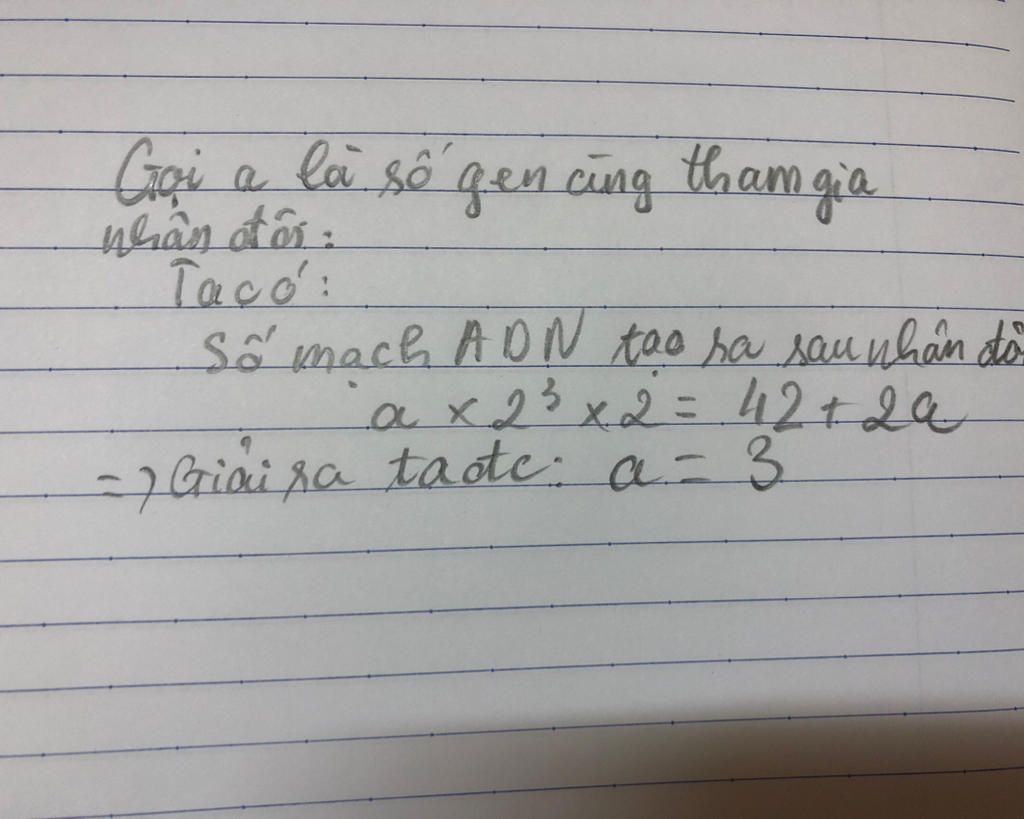 Gọi a là số gen cùng tham gia
nhân đôi:
Ta có:
Số mạch ADN tạo ra sau nhân đô
a × 2³ × 2 = 42 + 2a
=> Giải ra ta đc: a = 3